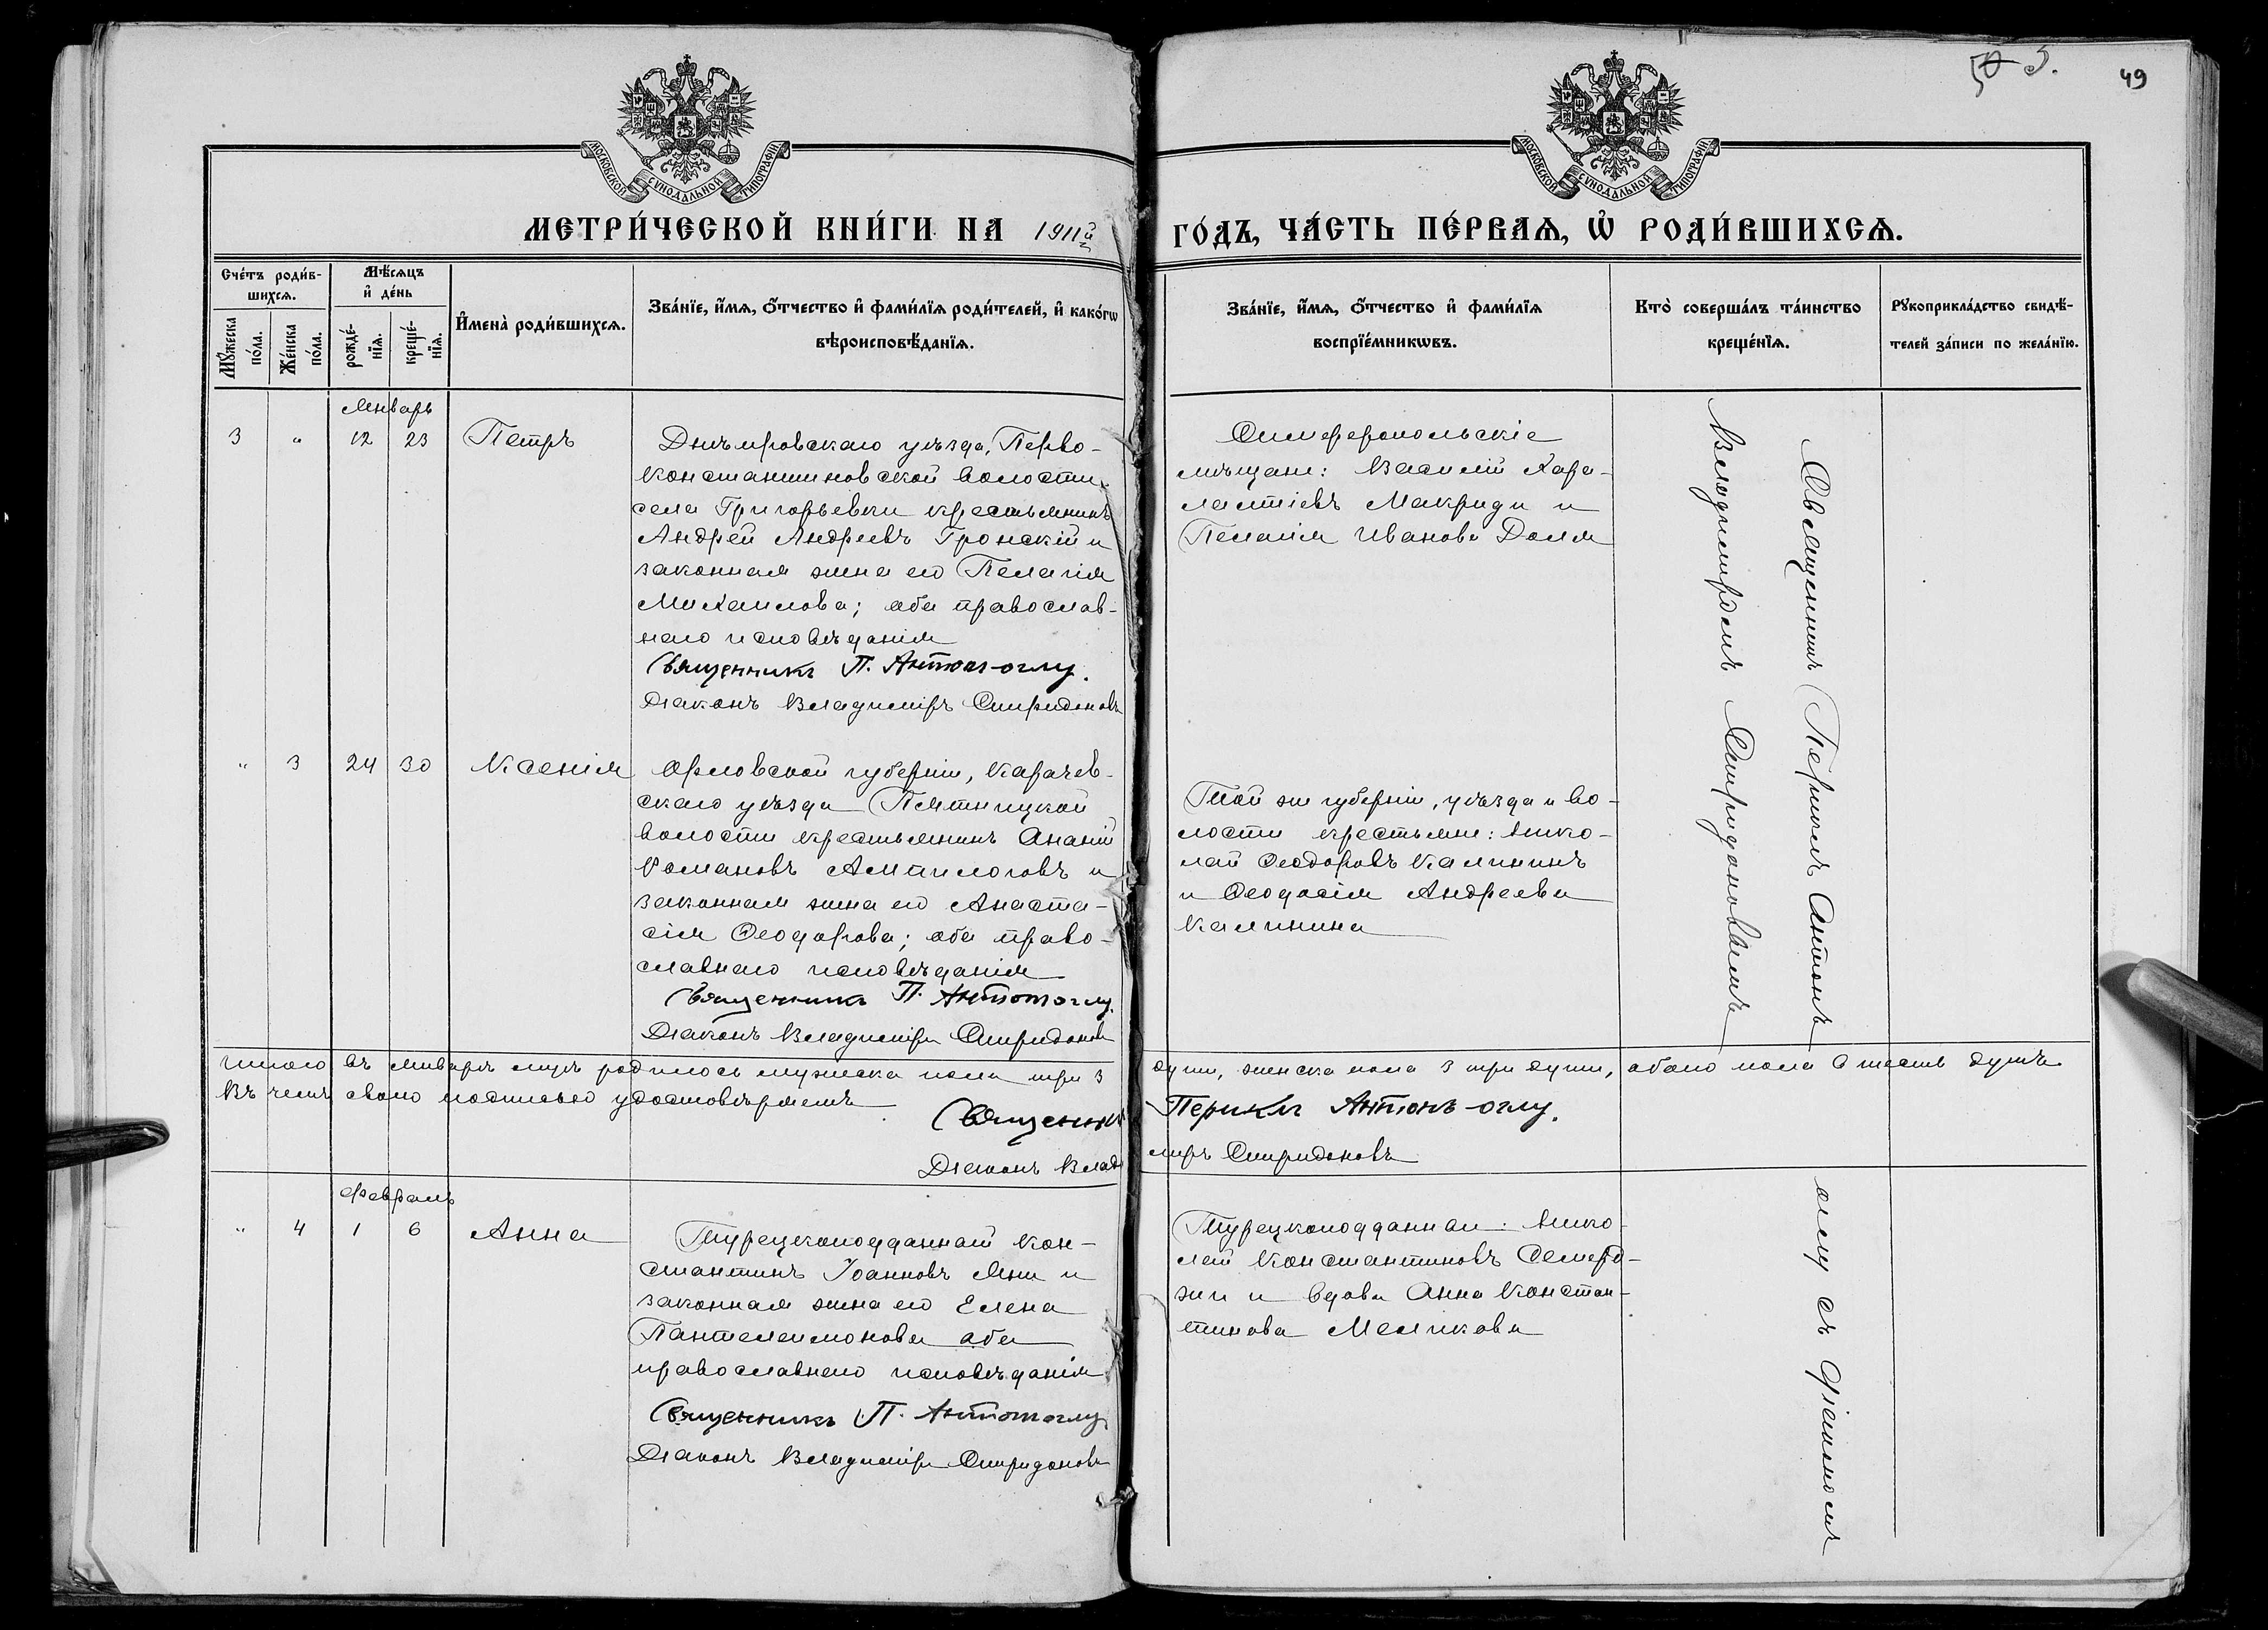 50 3.
49
МОСКОВСКОЙ СѴНОДАЛЬНОЙ ТИПОГРАФІИ
МОСКОВСКОЙ СѴНОДАЛЬНОЙ ТИПОГРАФІИ
МЕТРИ́ЧЕСКОЙ КНИ́ГИ НА 1911й
ГО́ДЪ, ЧА́СТЬ ПЕ́РВАѦ, Ѡ҆ РОДИ́ВШИХСѦ.
Сче́тъ роди́в-
шихсѧ.
Мѣ́сѧцъ
и҆ де́нь
Мꙋ́жеска
по́ла.
Же́нска
по́ла.
рожде́-
нїѧ.
креще́-
нїѧ.
И҆мена̀ роди́вшихсѧ.
Зва́нїе, и҆́мѧ, ѻ҆́тчество и҆ фами́лїѧ роди́телей, и҆ како́гѡ
вѣроисповѣ́данїѧ.
Зва́нїе, и҆́мѧ, ѻ҆́тчество и҆ фами́лїѧ
воспрїе́мникѡвъ.
Кто̀ соверша́лъ та́инство
креще́нїѧ.
Рꙋкоприкла́дство свидѣ́-
телей за́писи по жела́нїю.
Январь
3 " 12 23 Петръ
Днѣпровскаго уѣзда, Перво-
константиновской волости,
села Григорьевки крестьянинъ
Андрей Андреевъ Гронскій и
законная жена его Пелагія
Михаилова; оба православ-
наго исповѣданія
Священникъ П. Антон-оглу.
Діаконъ Владиміръ Спиридоновъ
Симферопольскіе
мѣщане: Василій Хара-
лампіевъ Макриди и
Пелагія Иванова Доля
" 3 24 30 Ксенія
Орловской губерніи, Карачев-
скаго уѣзда Пятницкой
волости крестьянинъ Ананій
Романовъ Ампилоговъ и
законная жена его Анаста-
сія Ѳеодорова; оба право-
славнаго исповѣданія
Священникъ П. Антоноглу.
Діаконъ Владиміръ Спиридоновъ
Той же губерніи, уѣзда и во-
лости крестьяне: Нико-
лай Ѳеодоровъ Калининъ
и Ѳеодосія Андреева
Калинина
Священникъ Периклъ Антонъ
Владиміромъ Спиридоновымъ
Итого въ январѣ мцѣ родилось мужеска пола три 3 души, женска пола 3 три души, обоего пола 6 шесть душъ
Въ чемъ своею подписью удостовѣряемъ
Священникъ Периклъ Антонъ-оглу.
Діаконъ Владиміръ Спиридоновъ
Февраль
" 4 1 6 Анна
Турецкоподданный Кон-
стантинъ Іоанновъ Яни и
законная жена его Елена
Пантелеимонова оба
православнаго исповѣданія
Священникъ П. Антоноглу
Діаконъ Владиміръ Спиридоновъ
Турецкоподданные: Нико-
лай Константиновъ Семерд-
жи и вдова Анна Констан-
тинова Меликова
оглу съ діакономъ